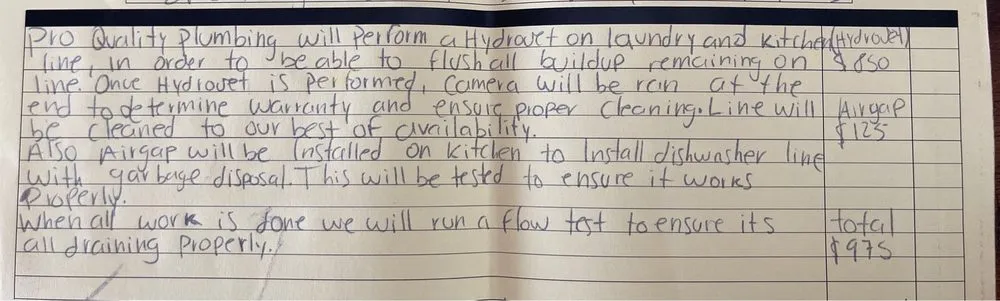 Pro Quality Plumbing will perform a Hydrojet on laundry and kitchen (Hydrojet)
line, in order to be able to flush all buildup remaining on $850
line. Once Hydrojet is performed, Camera will be ran at the
end to determine warranty and ensure proper cleaning. Line will Airgap
be cleaned to our best of availability. $125
Also Airgap will be installed on kitchen to install dishwasher line
with garbage disposal. This will be tested to ensure it works
properly.
When all work is done we will run a flow test to ensure its total
all draining properly. $975